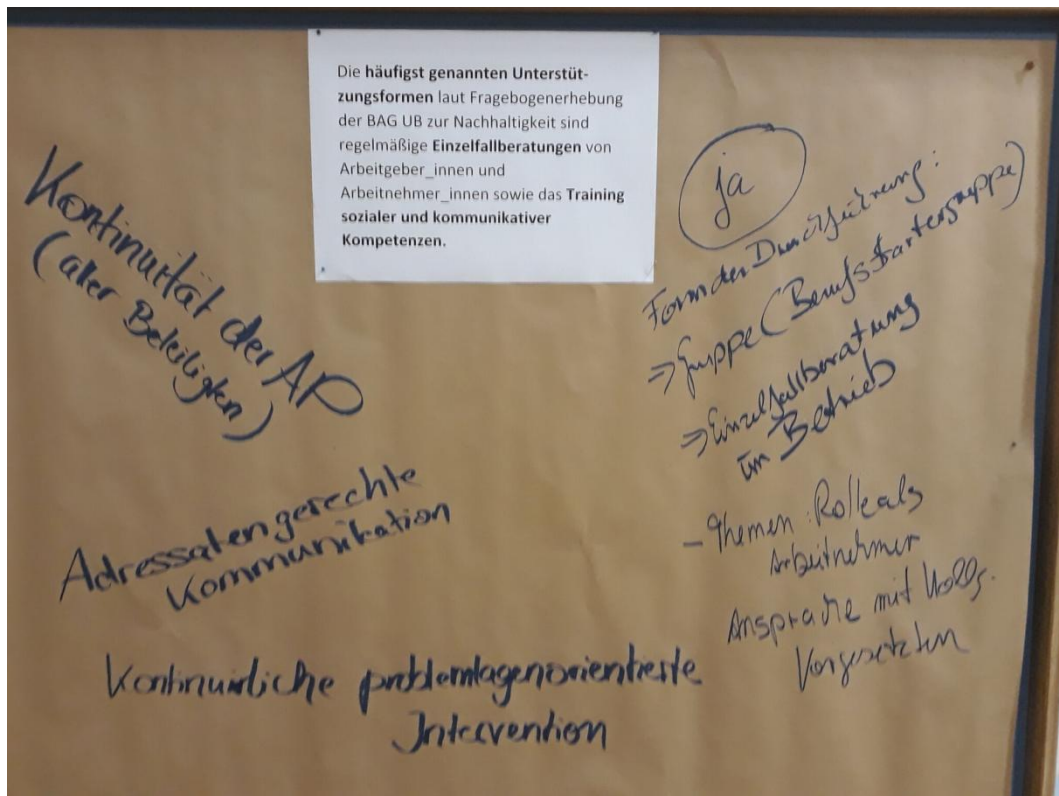 Die häufigst genannten Unterstüt-
zungsformen laut Fragebogenerhebung
der BAG UB zur Nachhaltigkeit sind
regelmäßige Einzelfallberatungen von
Arbeitgeber_innen und
Arbeitnehmer_innen sowie das Training
sozialer und kommunikativer
Kompetenzen.
Kontinuität der AP
(aller Beteiligten)
Adressatengerechte
Kommunikation
Kontinuirliche problemlagenorientierte
Intervention
ja
Form der Durchführung:
⇒ Gruppe (Berufsstartergruppe)
⇒ Einzelfallberatung
im Betrieb
- Themen: Rolle als
Arbeitnehmer
Ansprache mit Kollg.
Vorgesetzten